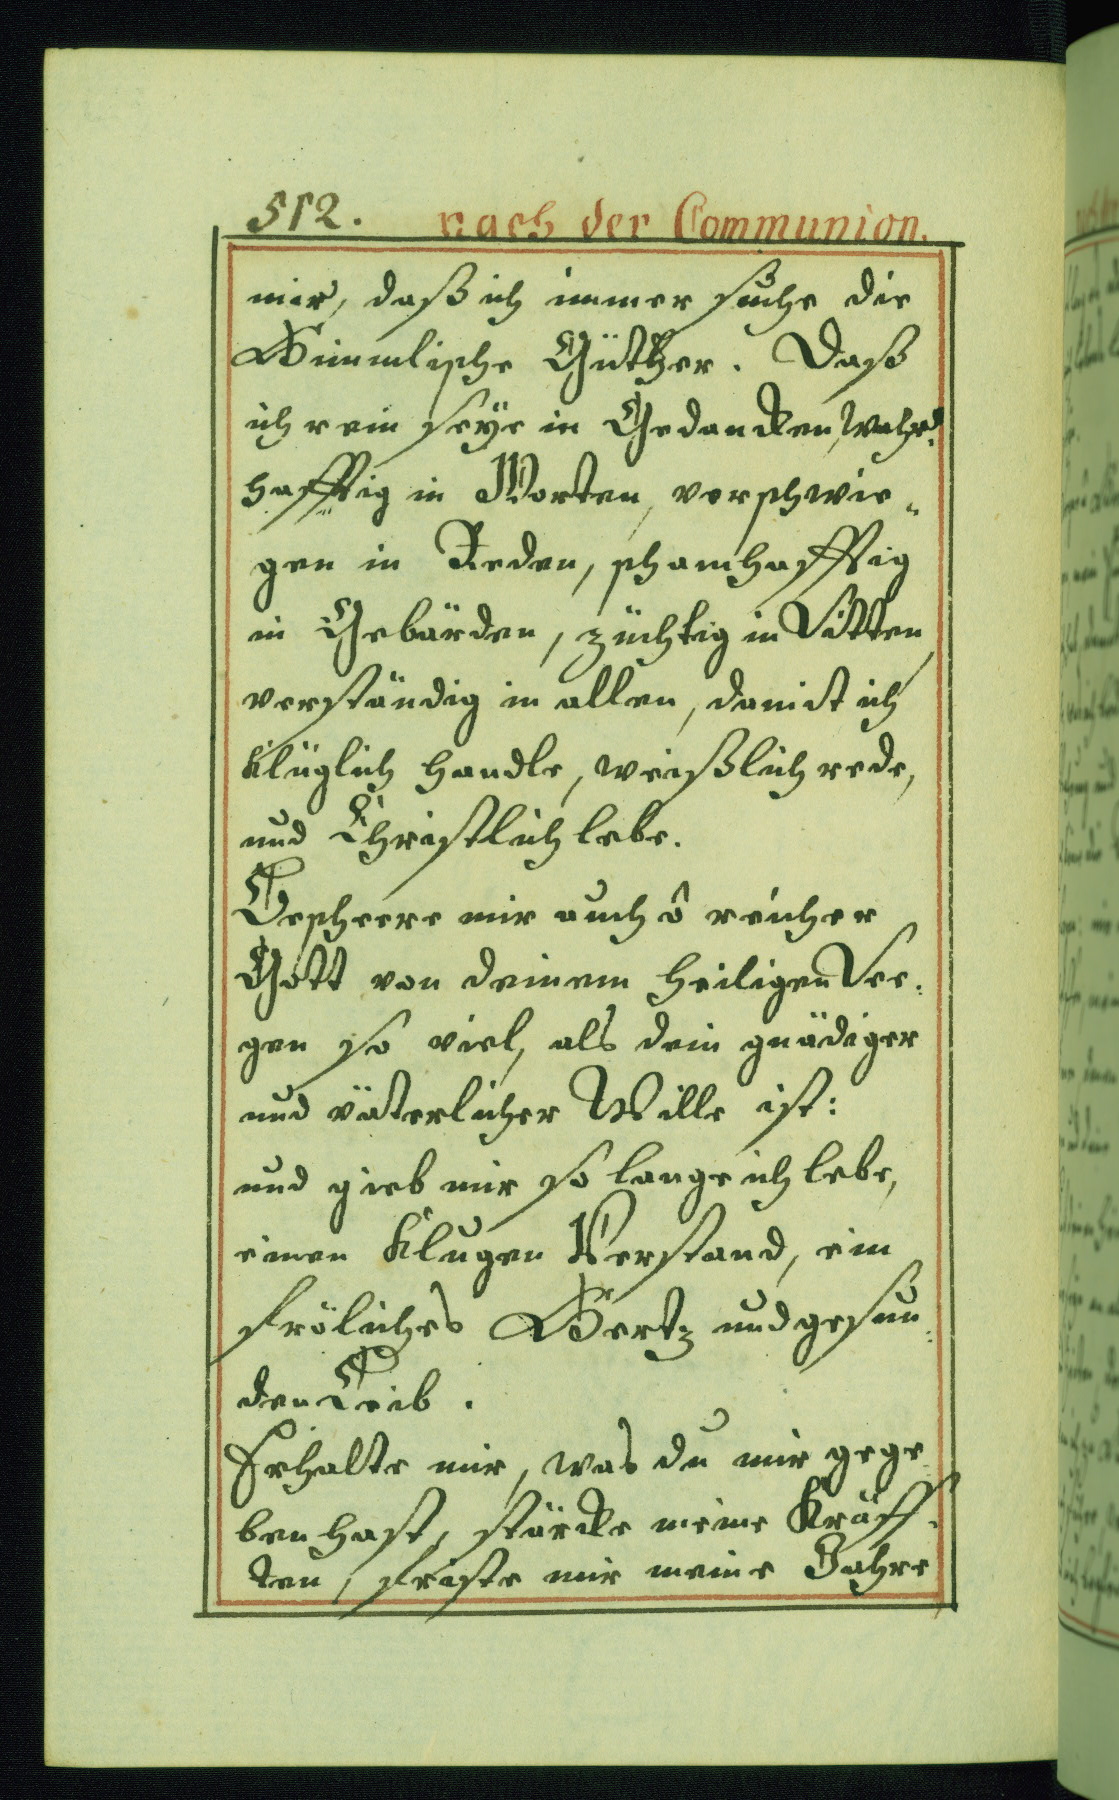 512. nach der Communion.
mir, daß ich immer suche die
Himmlische Güther. Daß
ich rein seÿe in Gedancken, wahr¬
hafftig in Worten, verschwie„
gen in Reden, schamhafftig
in Gebärden, züchtig in Sitten,
verständig in allen, damit ich
klüglich handle, weißlich rede,
und Christlich lebe.
Bescheere mir auch ô reicher
Gott von deinem heiligen See:
gen so viel, als dein gnädiger
und väterlicher Wille ist:
und gieb mir so lange ich lebe,
einen klugen Verstand, ein
fröliches Hertz und gesun:
den Leib.
Erhalte mir, was du mir gege
ben hast, stärcke meine Kräff„
ten, friste mir meine Jahre